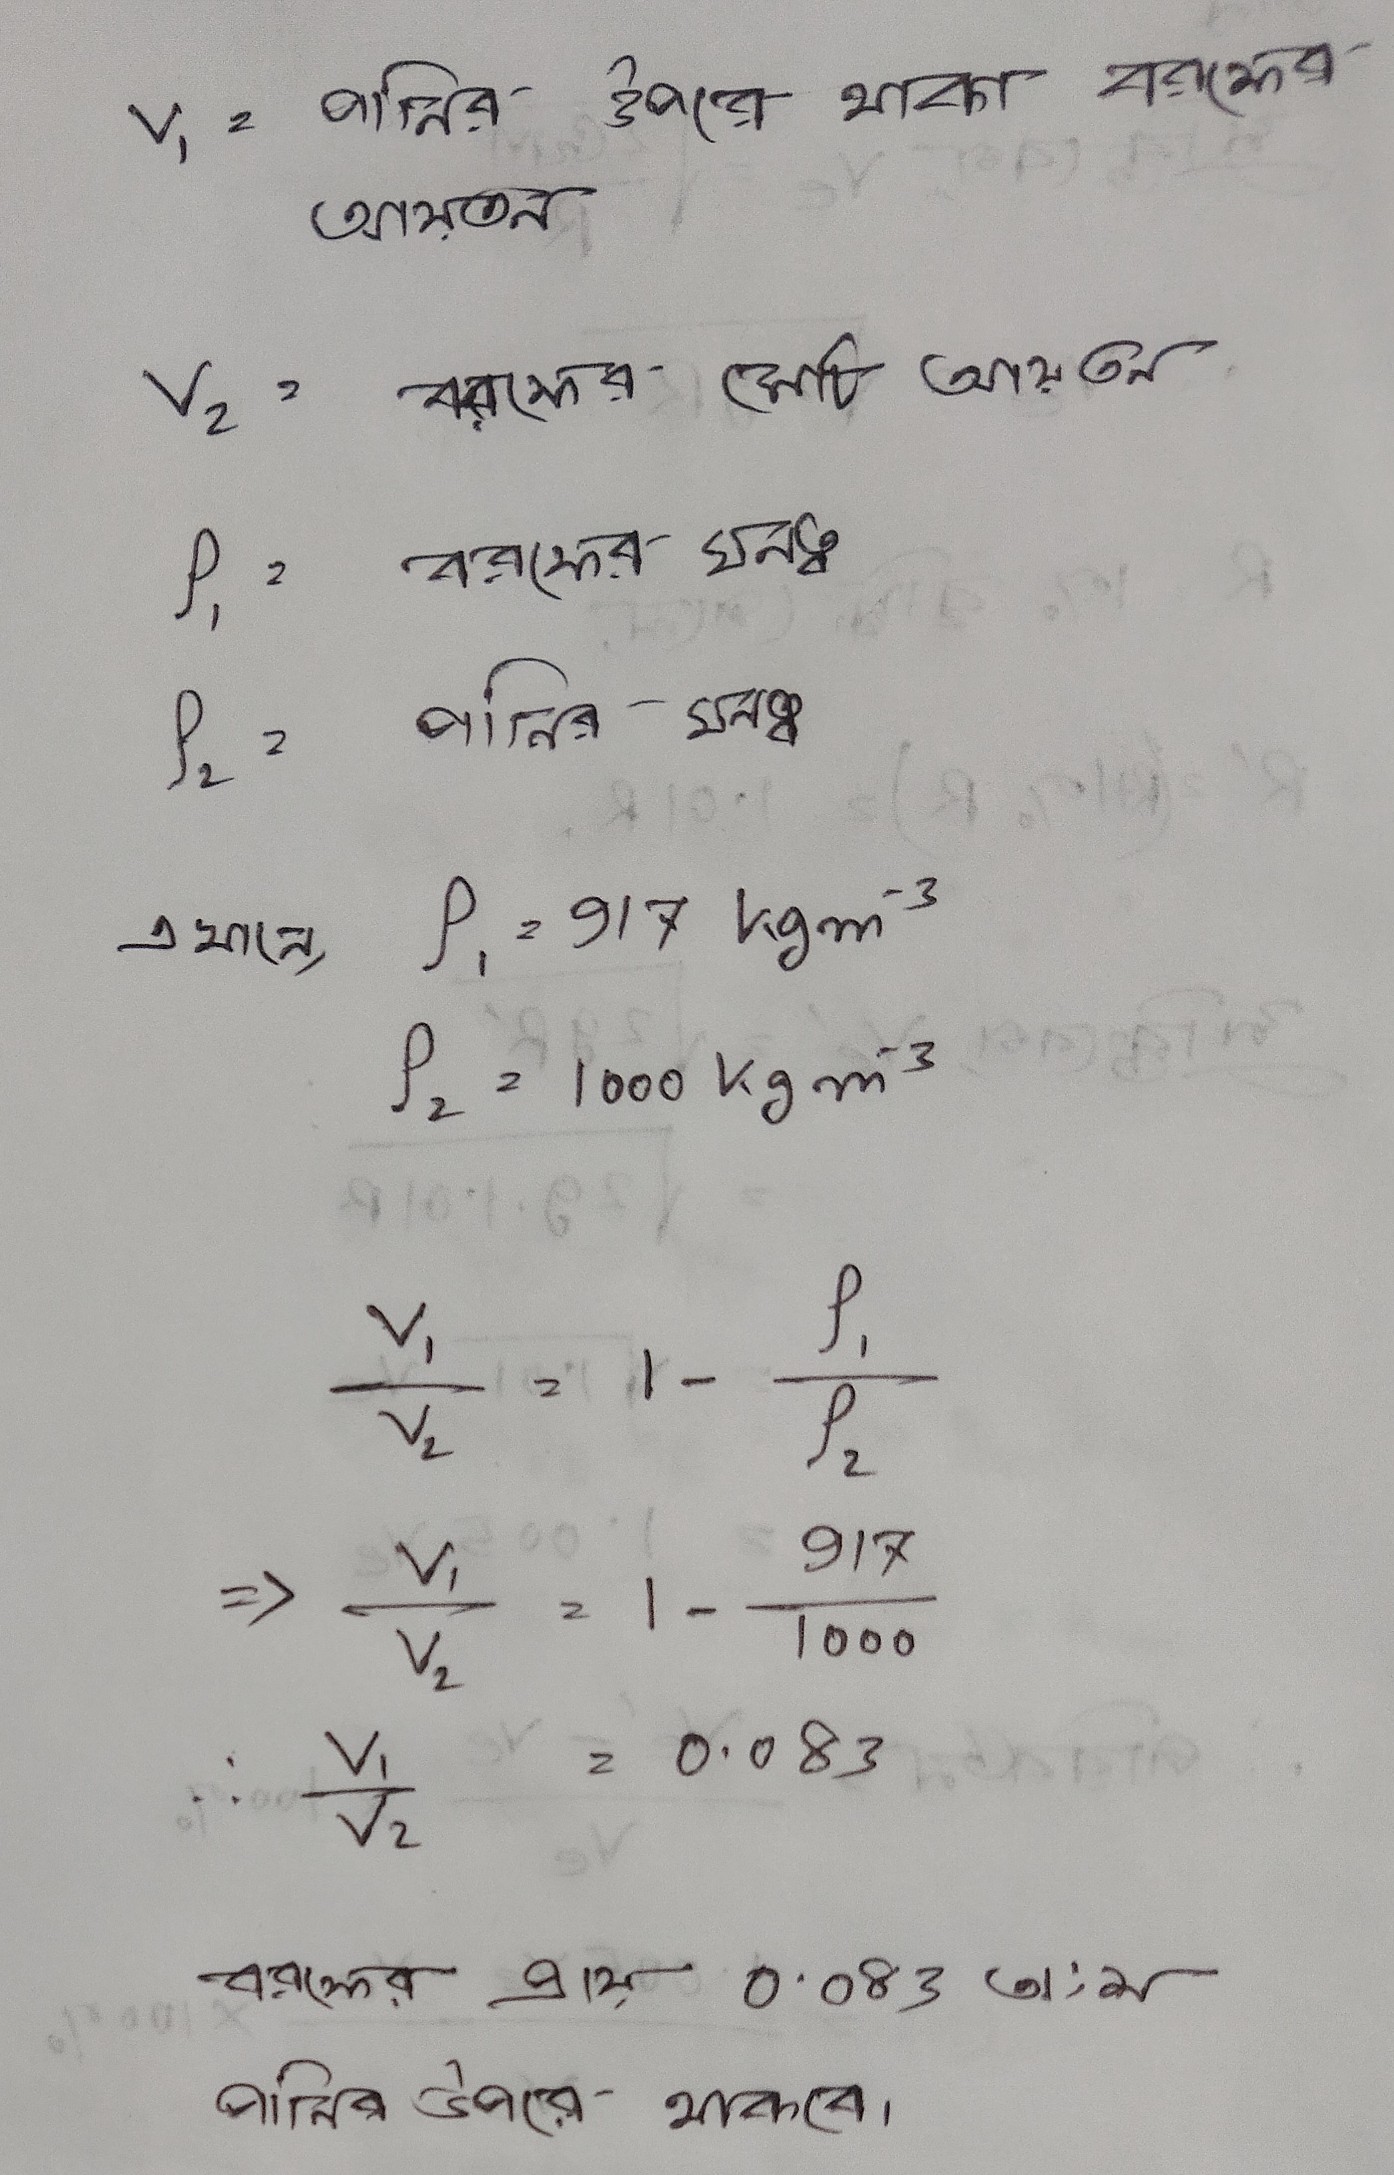 V₁ = পানির উপরে থাকা বরফের
আয়তন
V₂ = বরফের মোট আয়তন
ρ₁ = বরফের ঘনত্ব
ρ₂ = পানির ঘনত্ব
এখানে, ρ₁ = 917 kgm⁻³
ρ₂ = 1000 kgm⁻³
V₁/V₂ = 1 - ρ₁/ρ₂
=> V₁/V₂ = 1 - 917/1000
∴ V₁/V₂ = 0.083
বরফের প্রায় 0.083 অংশ
পানির উপরে থাকবে।